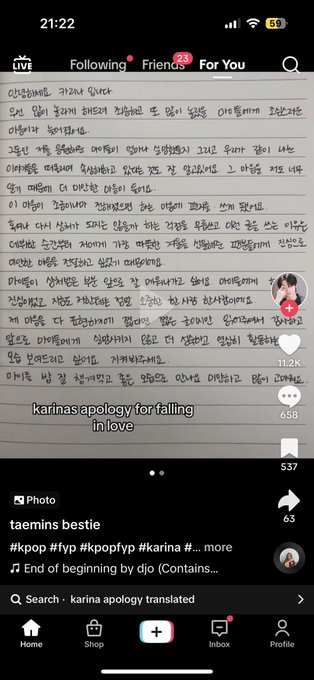 21:22
59
LIVE
Following Friends 23 For You
안녕하세요 카리나 입니다
우선 많이 놀라게 해드려 죄송하고 또 많이 놀랐을 마이들에게 조심스러운
마음이라 늦어졌어요.
그동안 저를 응원해준 마이들이 얼마나 실망했을지 그리고 우리가 같이 나눈
이야기들을 떠올리며 속상해하고 있다는 것도 잘 알고있어요. 그 마음을 저도 너무
알기 때문에 더 미안한 마음이 들어요.
이 마음이 조금이나마 전해졌으면 하는 마음에 편지를 쓰게 됐어요.
혹여나 다시 상처가 되지는 않을까 하는 걱정을 무릅쓰고 이런 글을 쓰는 이유는
데뷔한 순간부터 저에게 가장 따뜻한 겨울을 선물해준 팬분들에게 진심으로
미안한 마음을 전달하고 싶었기 때문이에요.
마이들이 상처받은 부분 앞으로 잘 메워나가고 싶어요 마이들에게
진심이었고 지금도 저한테는 정말 소중한 한 사람 한사람이에요.
제 마음을 다 표현하기에 짧다면 짧은 글이지만 읽어주셔서 감사하고
앞으로 마이들에게 실망시키지 않고 더 성숙하고 열심히 활동하는
모습 보여드리고 싶어요. 지켜봐주세요.
마이들 밥 잘 챙겨먹고 좋은 모습으로 만나요 미안하고 많이 고마워요.
karinas apology for falling
in love
11.2K
658
537
63
Photo
taemins bestie
#kpop #fyp #kpopfyp #karina #... more
End of beginning by djo (Contains...
Search · karina apology translated
Home Shop Inbox Profile